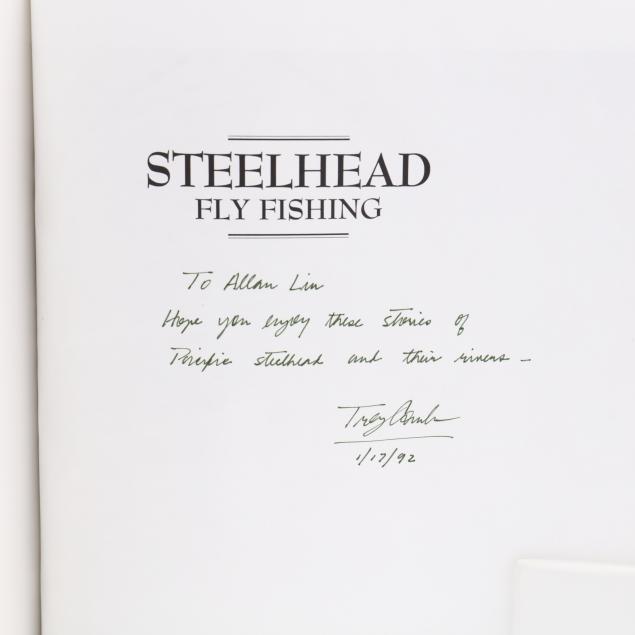 STEELHEAD
FLY FISHING
To Allan Lin
Hope you enjoy these stories of
Pacific steelhead and their rivers –
Trey Combs
1/17/92